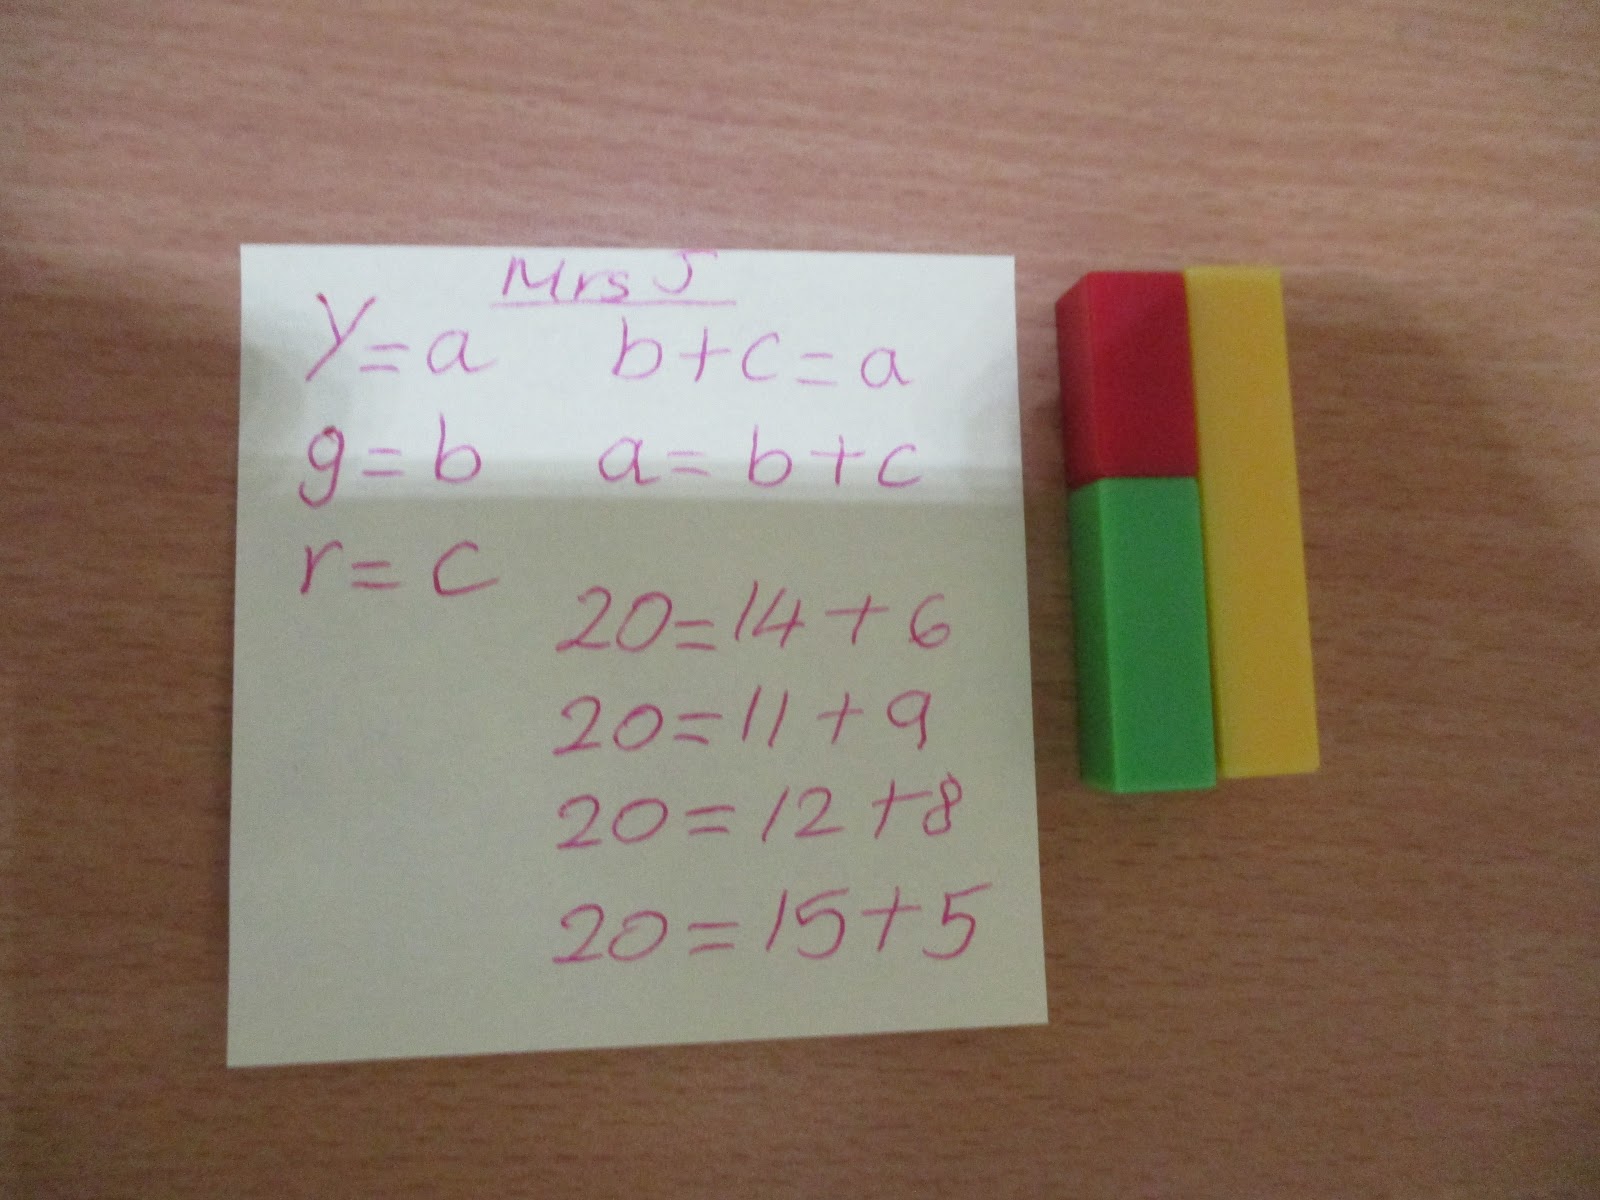 Mrs J
y=a b+c=a
g=b a=b+c
r=c
20=14+6
20=11+9
20=12+8
20=15+5